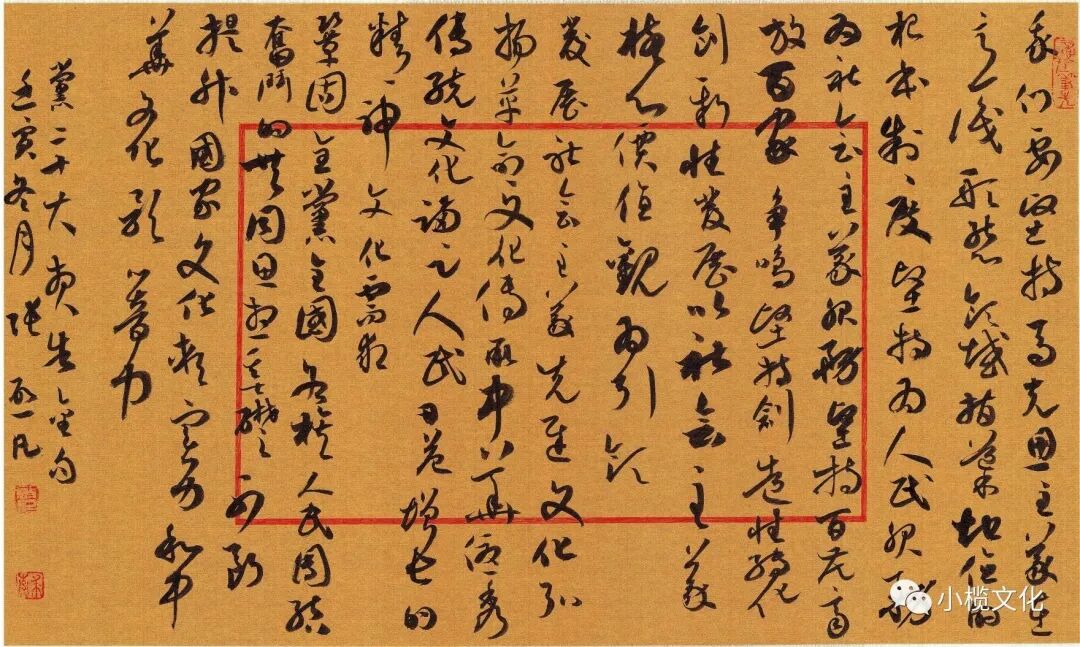 我们要坚持马克思主义在
意识形态领域指导地位的
根本制度坚持为人民服务
为社会主义服务坚持百花齐
放百家争鸣坚持創造性转化
创新性发展以社会主义
核心價值觀为引领
发展社会主义先进文化弘
扬革命文化传承中华优秀
传统文化满足人民日益增长的
精神文化需求
巩固全黨全國各族人民团结
奮鬥的共同思想基础不断
提升國家文化软实力和中
华文化影响力
黨二十大报告金句
壬寅冬月 张 凡
小榄文化